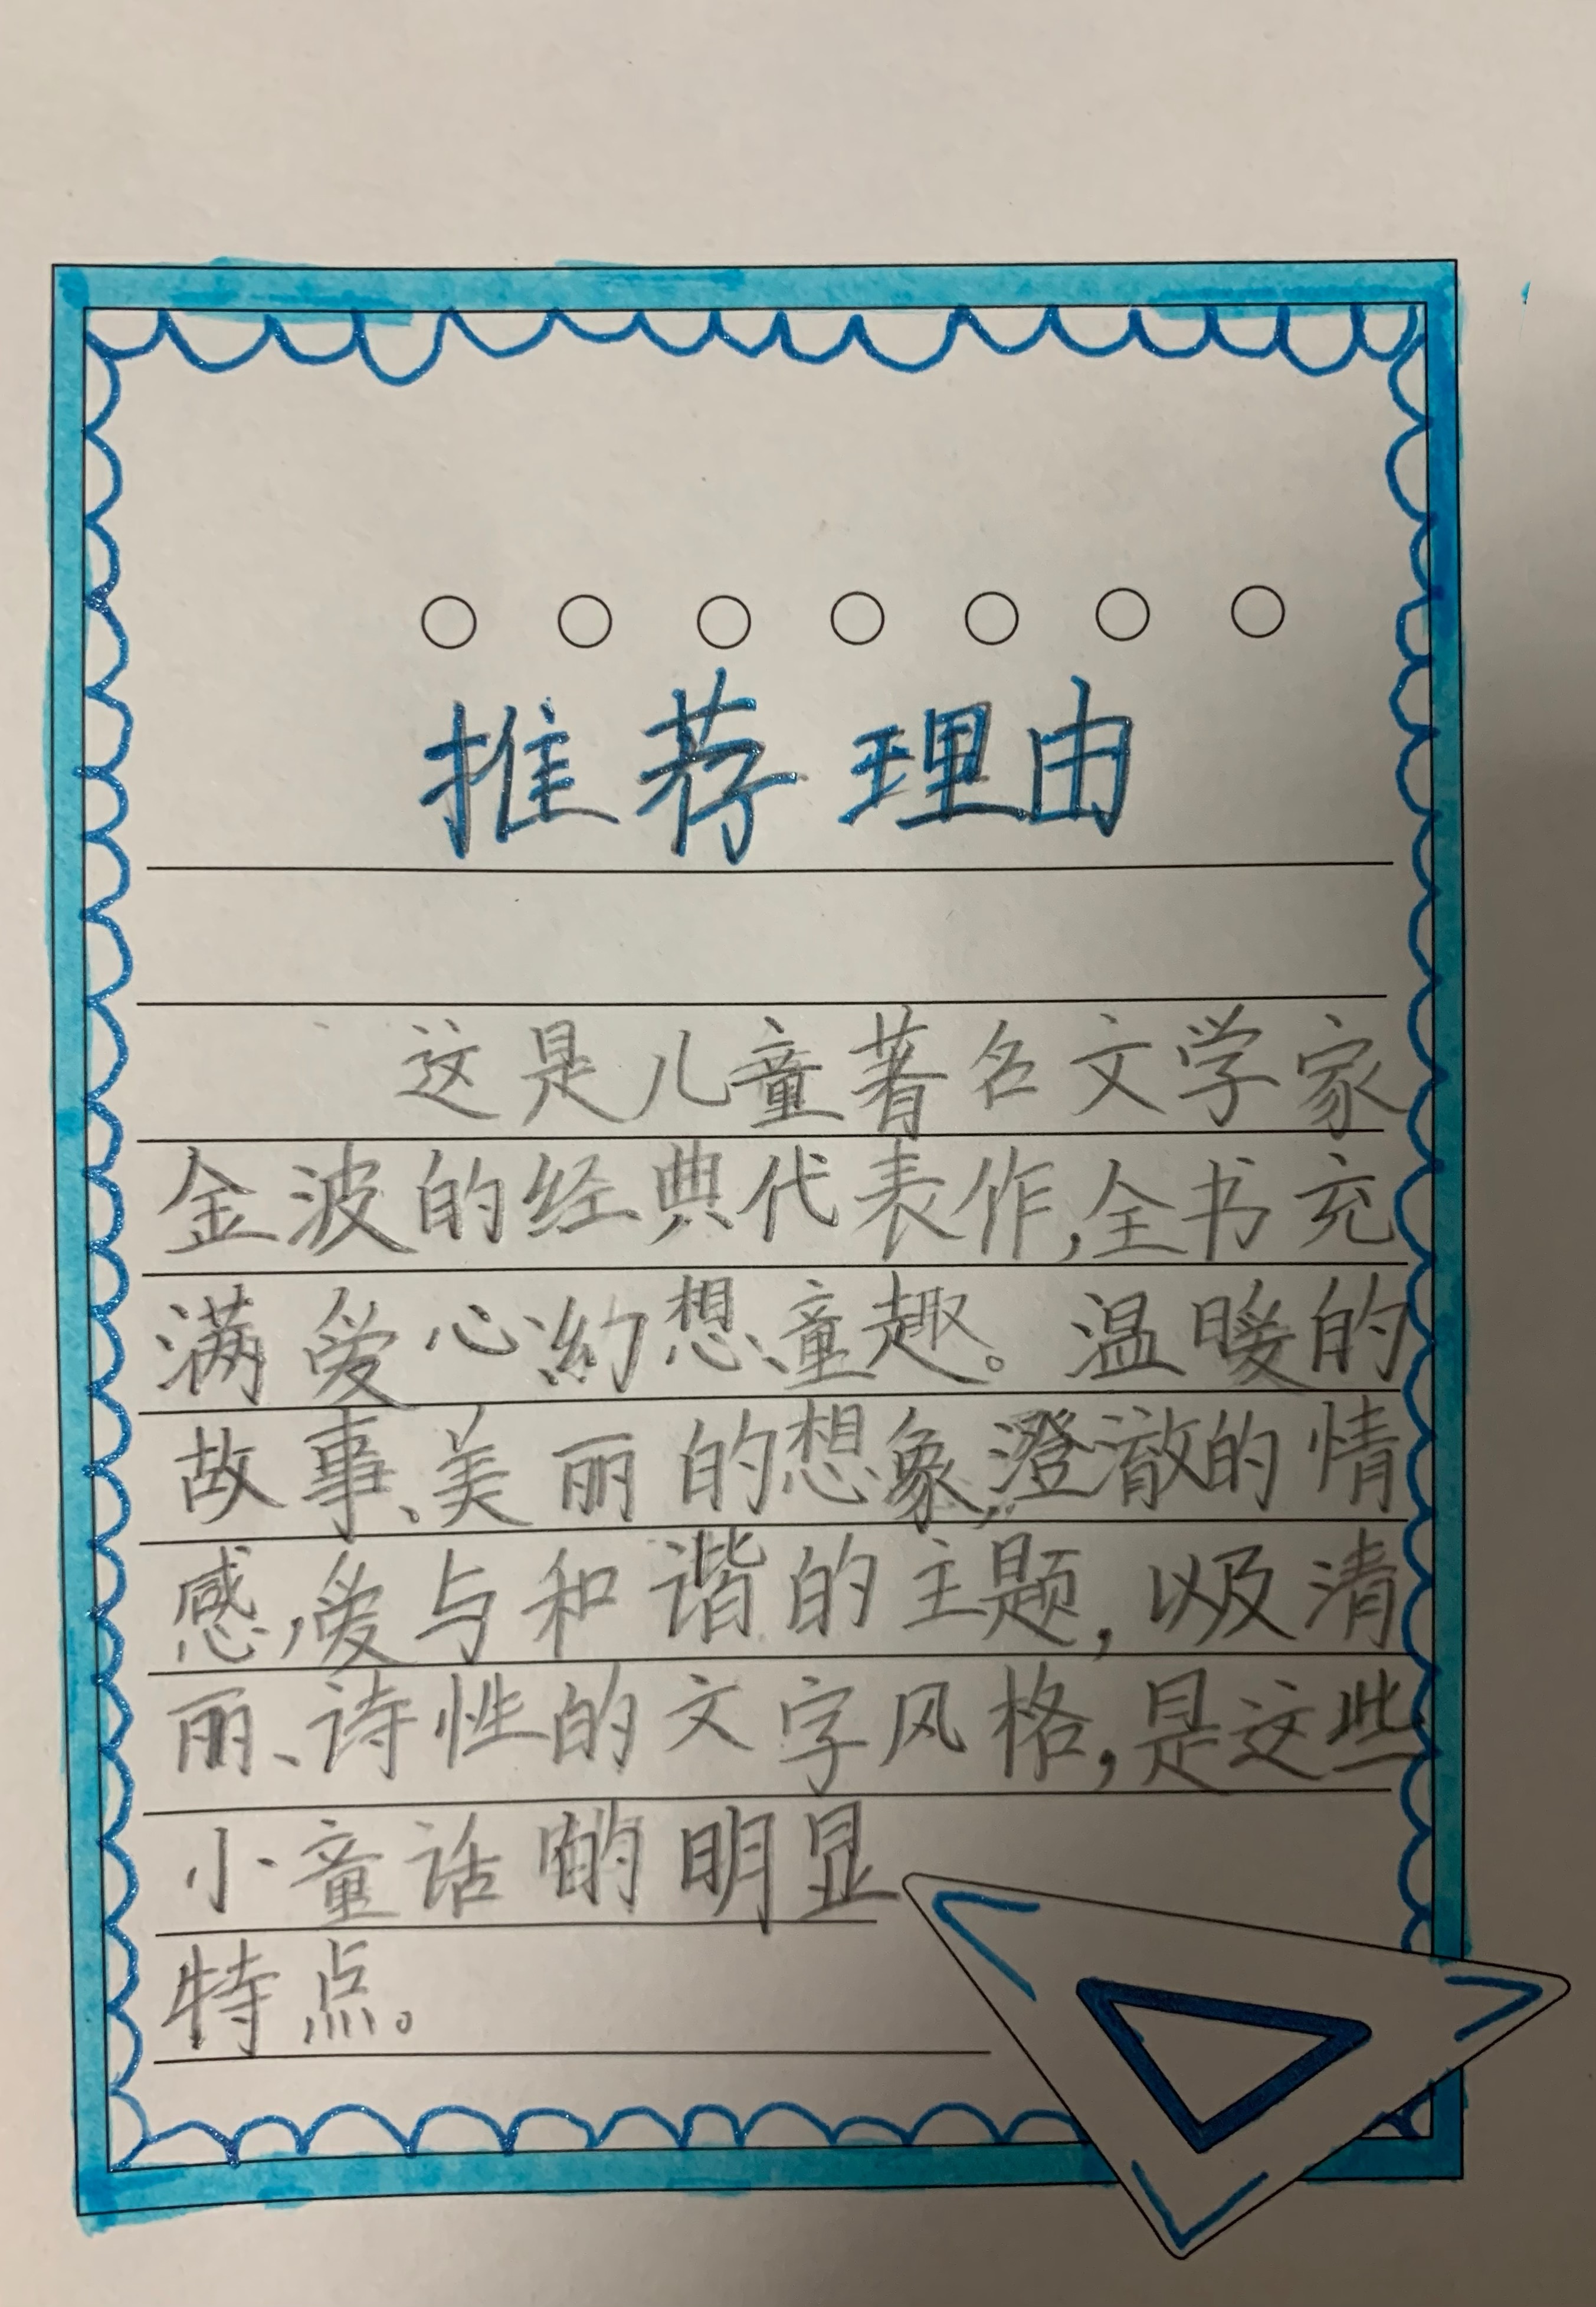 推荐理由
这是儿童著名文学家
金波的经典代表作,全书充
满爱心、幻想、童趣。温暖的
故事、美丽的想象,澄澈的情
感,爱与和谐的主题,以及清
丽、诗性的文字风格,是这些
小童话的明显
特点。